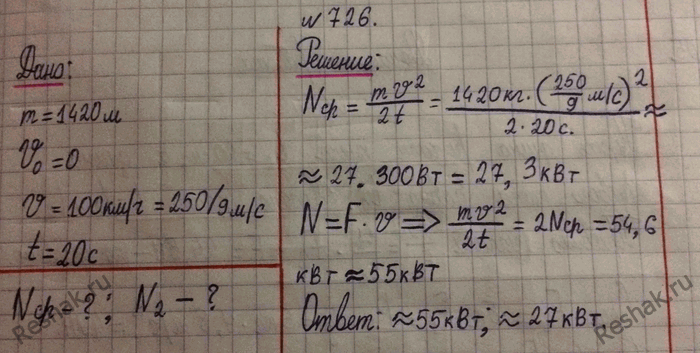 №726.
Дано:
m = 1420 м
v₀ = 0
v = 100 км/ч = 250/9 м/с
t = 20 с
Nср – ?; N₂ – ?
Решение:
Nср = mv²/2t = 1420 кг·(250/9 м/с)²/2·20с. ≈
≈ 27.300Вт = 27,3 кВт
N = F·v => mv²/2t = 2Nср = 54,6
кВт ≈ 55 кВт
Ответ: ≈ 55 кВт; ≈ 27 кВт.
Reshak.ru
Reshak.ru